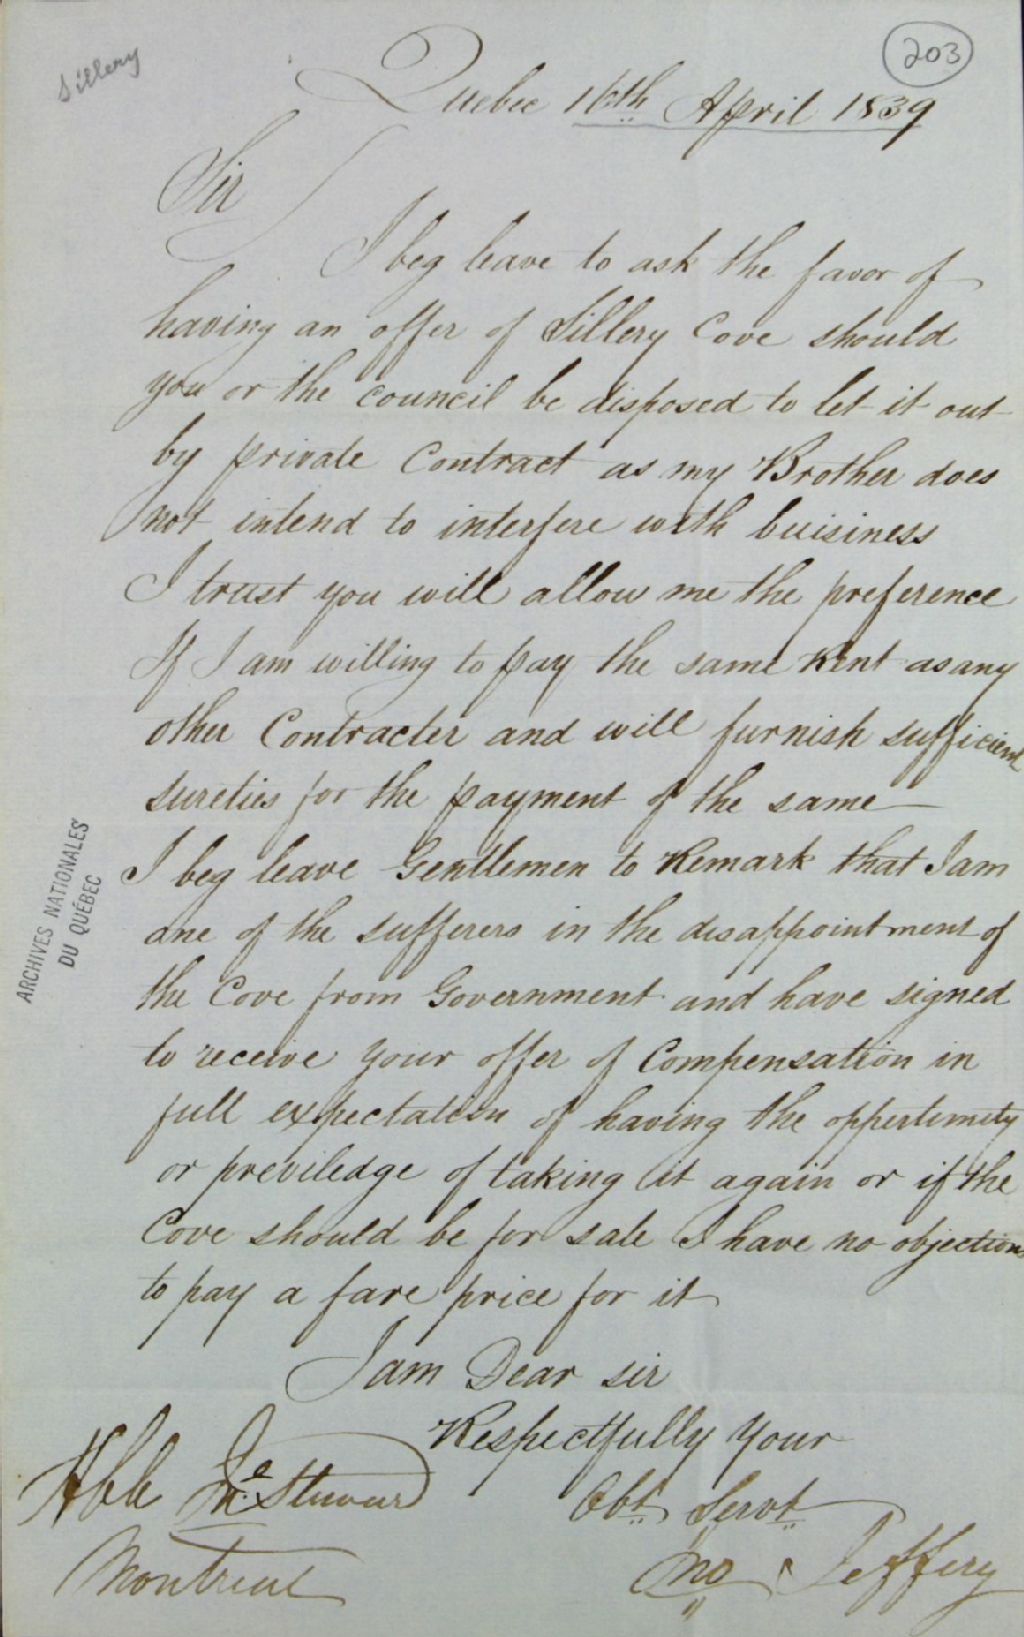 Sillery
203
Quebec 16th April 1839
Sir
I beg leave to ask the favor of
having an offer of Sillery Cove should
you or the council be disposed to let it out
by private Contract as my Brother does
not intend to interfere with buisiness
I trust you will allow me the preference
If I am willing to pay the same Rent as any
other Contracter and will furnish sufficient
sureties for the payment of the same
I beg leave Gentlemen to Remark that I am
one of the sufferers in the disappointment of
the Cove from Government and have signed
to receive your offer of Compensation in
full expectation of having the oppertunity
or previledge of taking it again or if the
Cove should be for sale I have no objection
to pay a fare price for it
I am Dear sir
Respectfully Your
Obt Servt
Jno Jeffery
Hble Stewart
Montreal
ARCHIVES NATIONALES
DU QUÉBEC